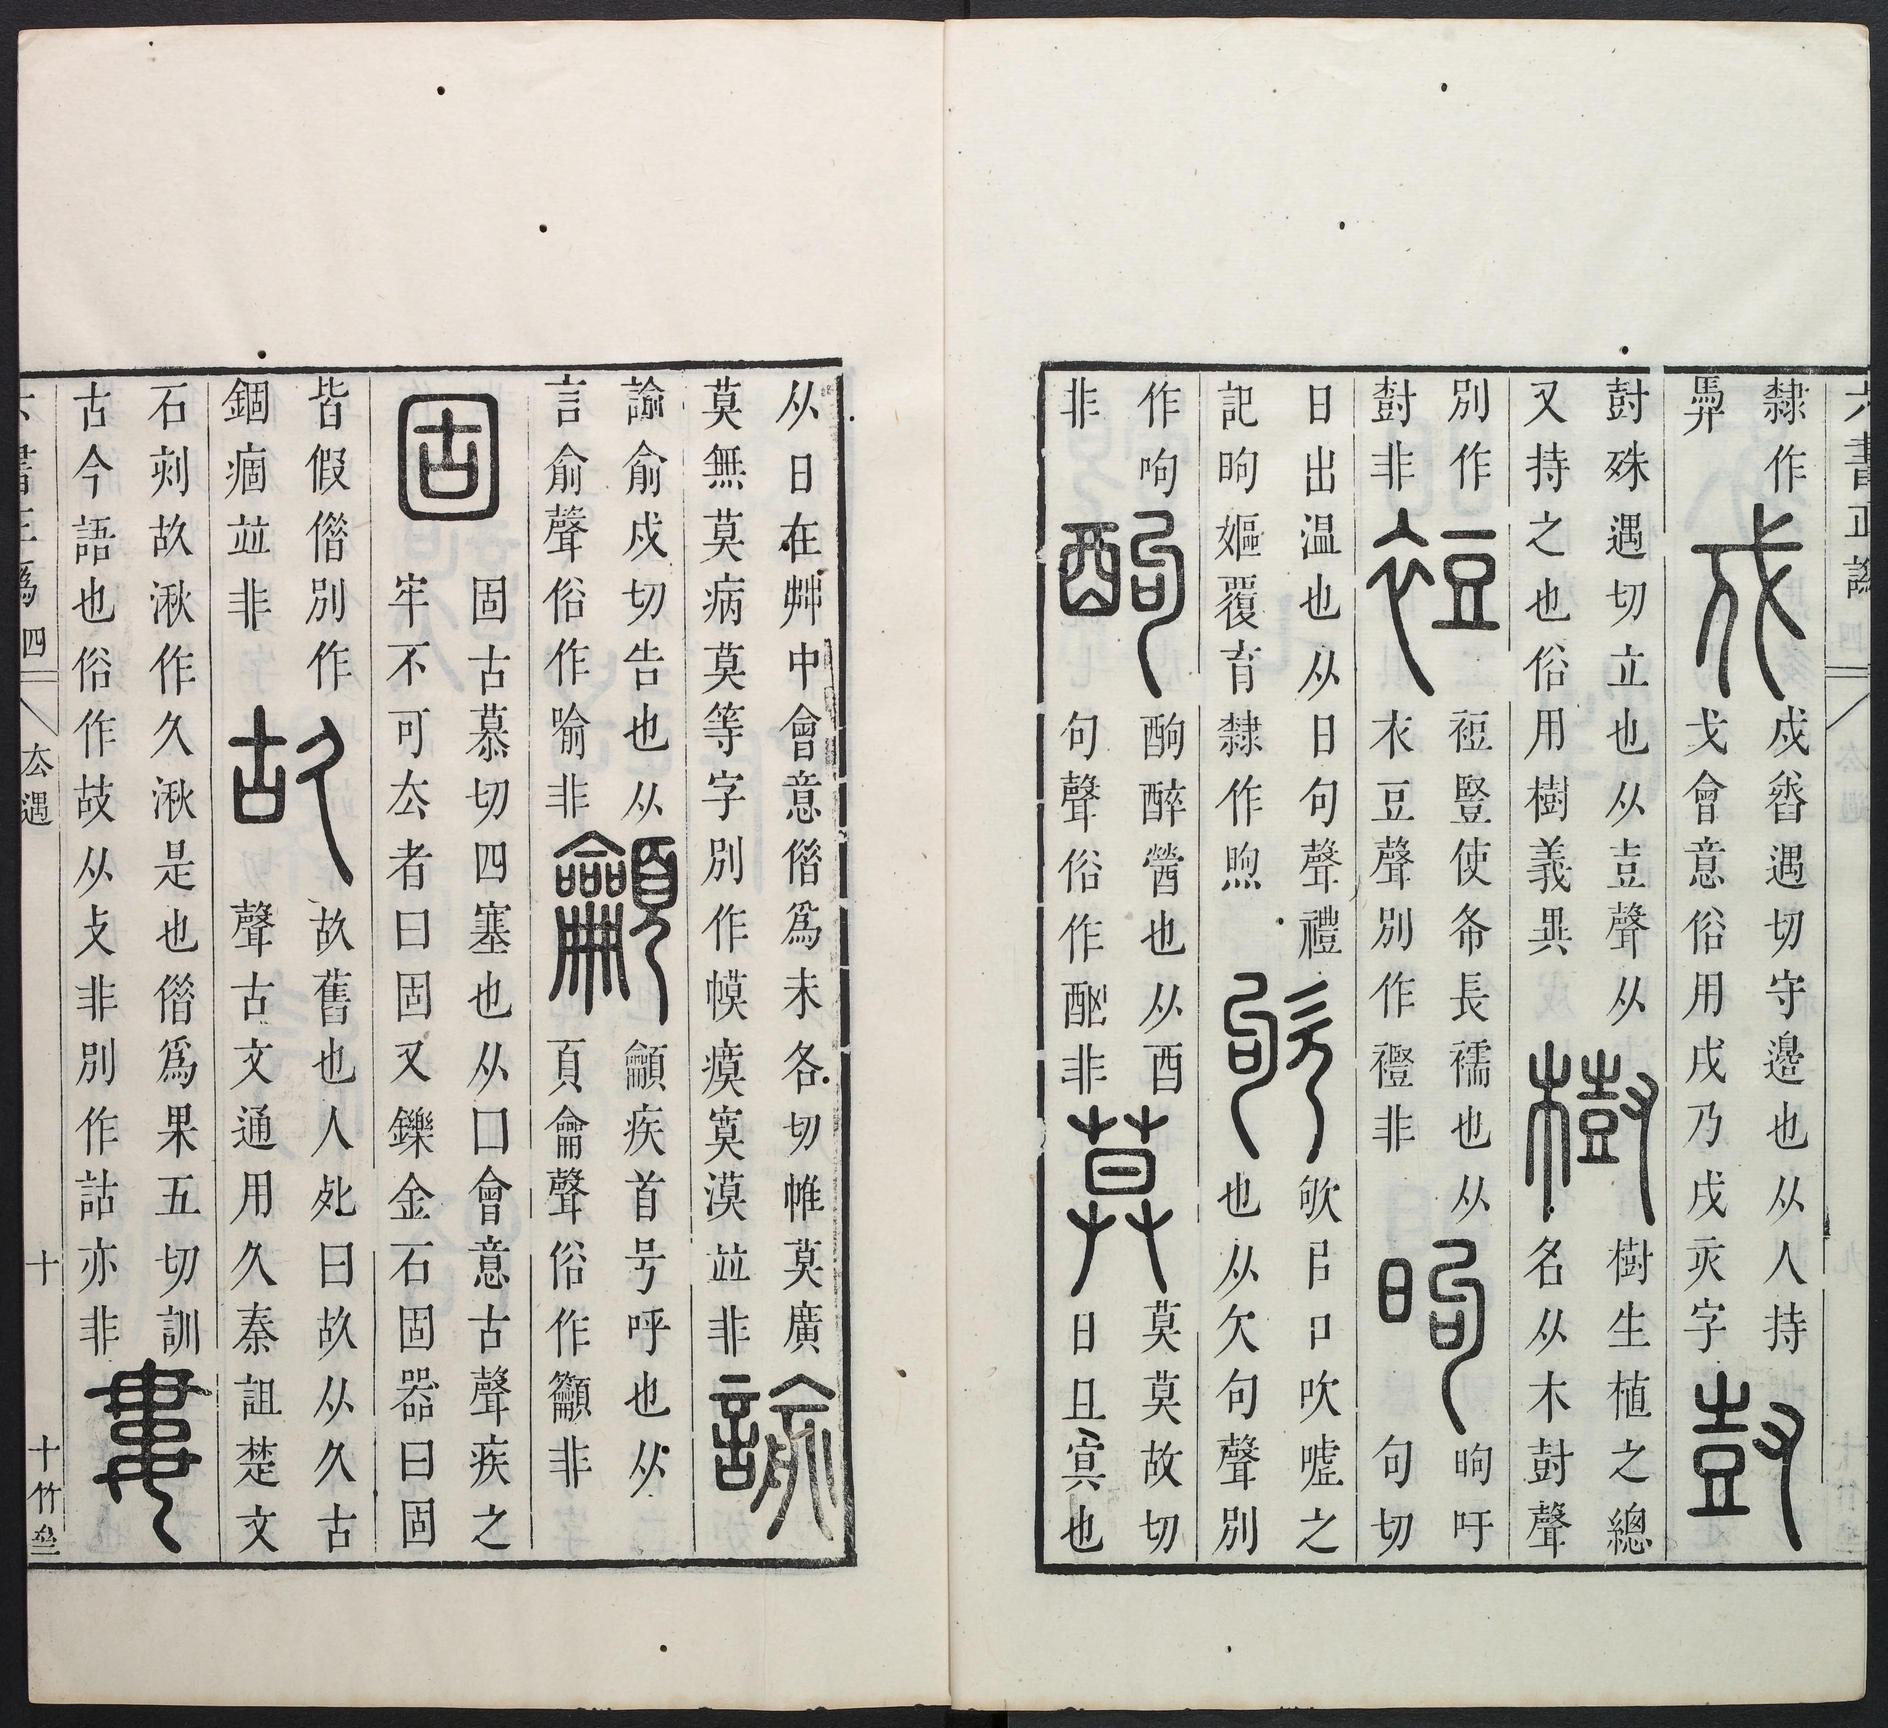 六書正譌
隸作
戍
戍舂遇切守邊也从人持
戈會意俗用戌乃戌亥字
尌
尌殊遇切立也从壴聲从
又持之也俗用樹義異
樹
樹生植之總
名从木尌聲
別作
非
裋
裋豎使布長襦也从
衣豆聲別作非
昫
昫吁
句切
日出温也从日句聲禮
記昫嫗覆育隸作煦
欨
欨㠯口吹嘘之
也从欠句聲別
作呴
非
酌
酌醉醟也从酉
句聲俗作酗非
莫
莫莫故切
日且冥也
从日在茻中會意借爲末各切帷莫廣
莫無莫病莫等字別作幙瘼寞漠並非
諭
諭俞戍切告也从
言俞聲俗作喻非
籲
籲疾首号呼也从
頁龠聲俗作籲非
固
固古慕切四塞也从囗會意古聲疾之
牢不可厺者曰固又鑠金石固器曰固
皆假借別作
錮痼並非
故
故舊也人死曰故从久古
聲古文通用久秦詛楚文
石刻故湫作久湫是也借爲果五切訓
古今語也俗作故从攴非別作詁亦非
婁
六書正譌 四 厺遇 十 十竹